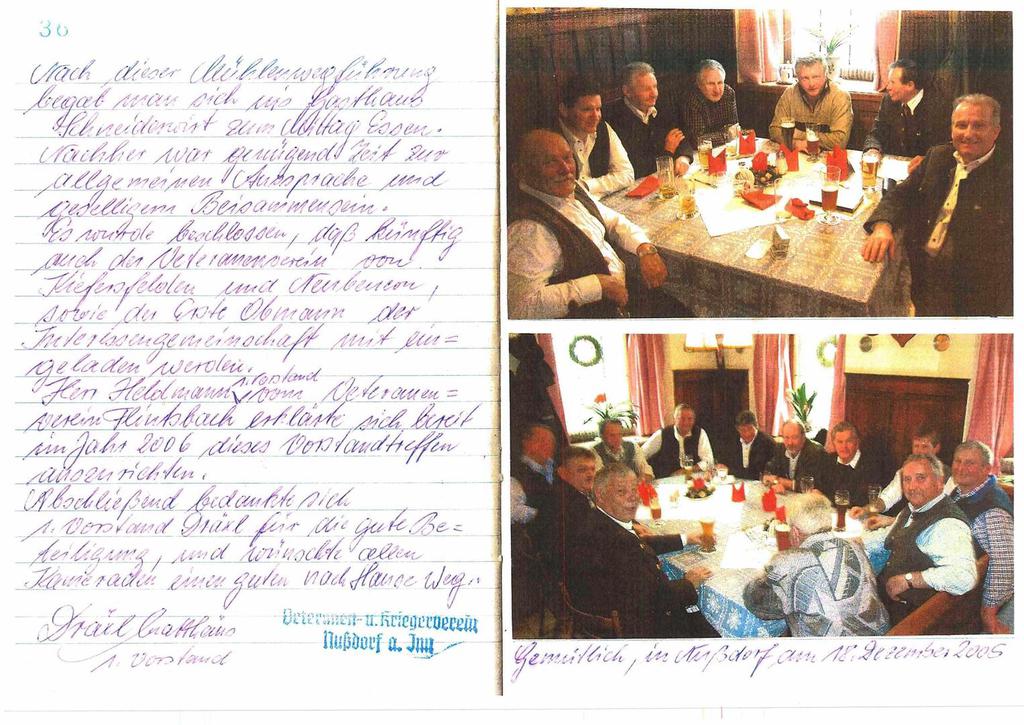 36
Nach dieser Mühlenwegführung
begab man sich ins Gasthaus
Schneiderwirt zum Mittag Essen.
Nachher war genügend Zeit zur
allgemeinen Aussprache und
geselligem Beisammensein.
Es wurde beschlossen, daß künftig
auch der Veteranenverein von
Kiefersfelden und Neubeuern,
sowie der Erste Obmann der
Interessengemeinschaft mit ein=
geladen werden.
Herr Heldmann 1. Vorstand vom Veteranen=
verein Flintsbach erklärte sich bereit
im Jahr 2006 dieses Vorstandtreffen
auszurichten.
Abschließend bedankte sich
1. Vorstand Dräxl für die gute Be=
teiligung, und wünschte allen
Kameraden einen guten nach Hause Weg.
Dräxl Matthäus
1. Vorstand
Veteranen- u. Kriegerverein
Nußdorf a. Inn
Gemütlich, in Nußdorf am 18. Dezember 2005